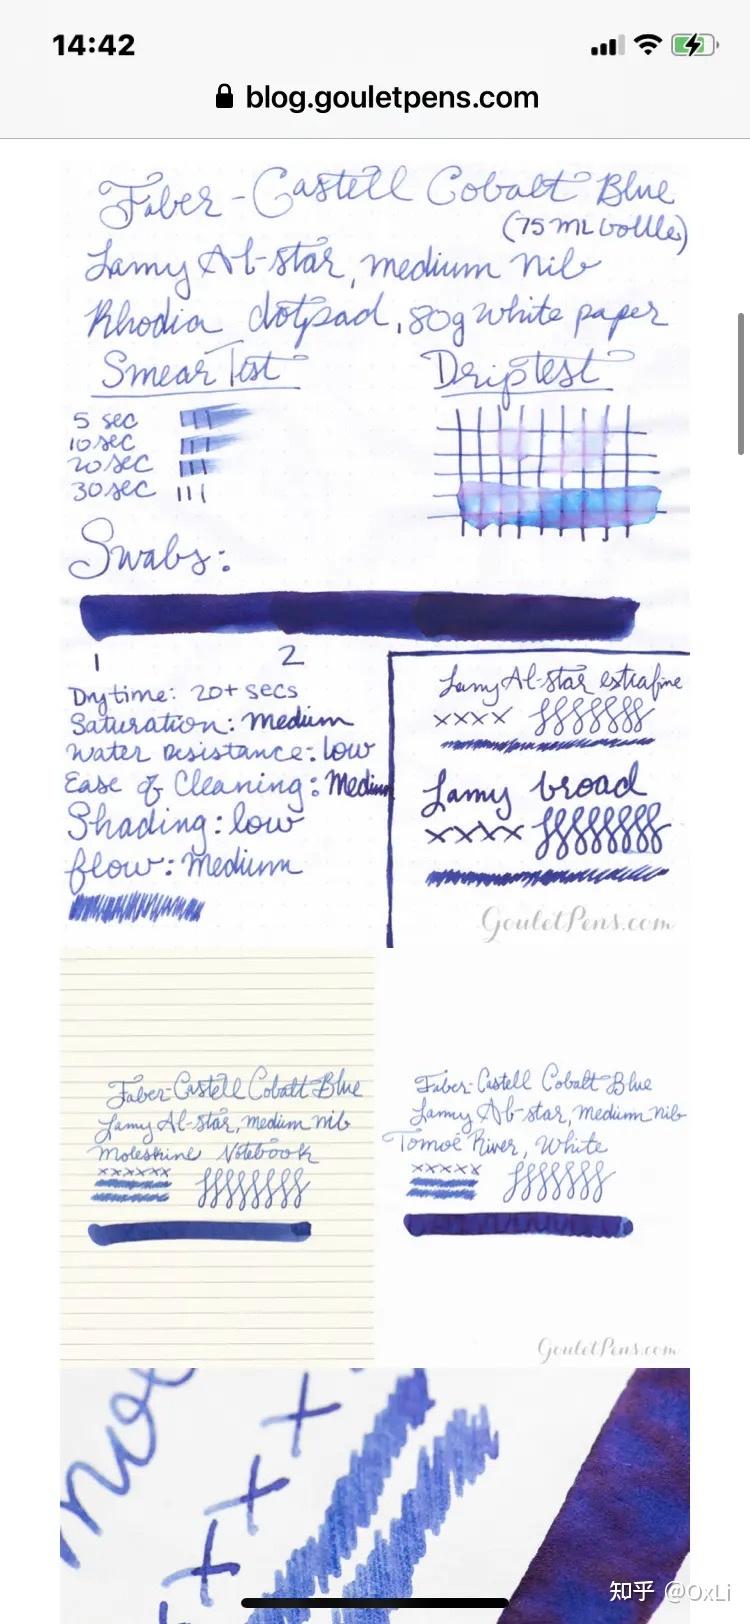 14:42
blog.gouletpens.com
Faber-Castell Cobalt Blue
(75 mL bottle)
Lamy Al-star, medium nib
Rhodia dotpad, 80g white paper
Smear Test
Drip test
5 sec
10 sec
20 sec
30 sec
Swabs:
1 2
Dry time: 20+ secs
Saturation: Medium
Water Resistance: low
Ease of Cleaning: Medium
Shading: low
flow: Medium
Lamy Al-star extra fine
xxxx
Lamy broad
xxxx
GouletPens.com
Faber-Castell Cobalt Blue
Lamy Al-star, medium nib
Moleskine Notebook
xxxxxx
Faber-Castell Cobalt Blue
Lamy Al-star, medium nib
Tomoe River, White
xxxxx
GouletPens.com
知乎 @OxLi